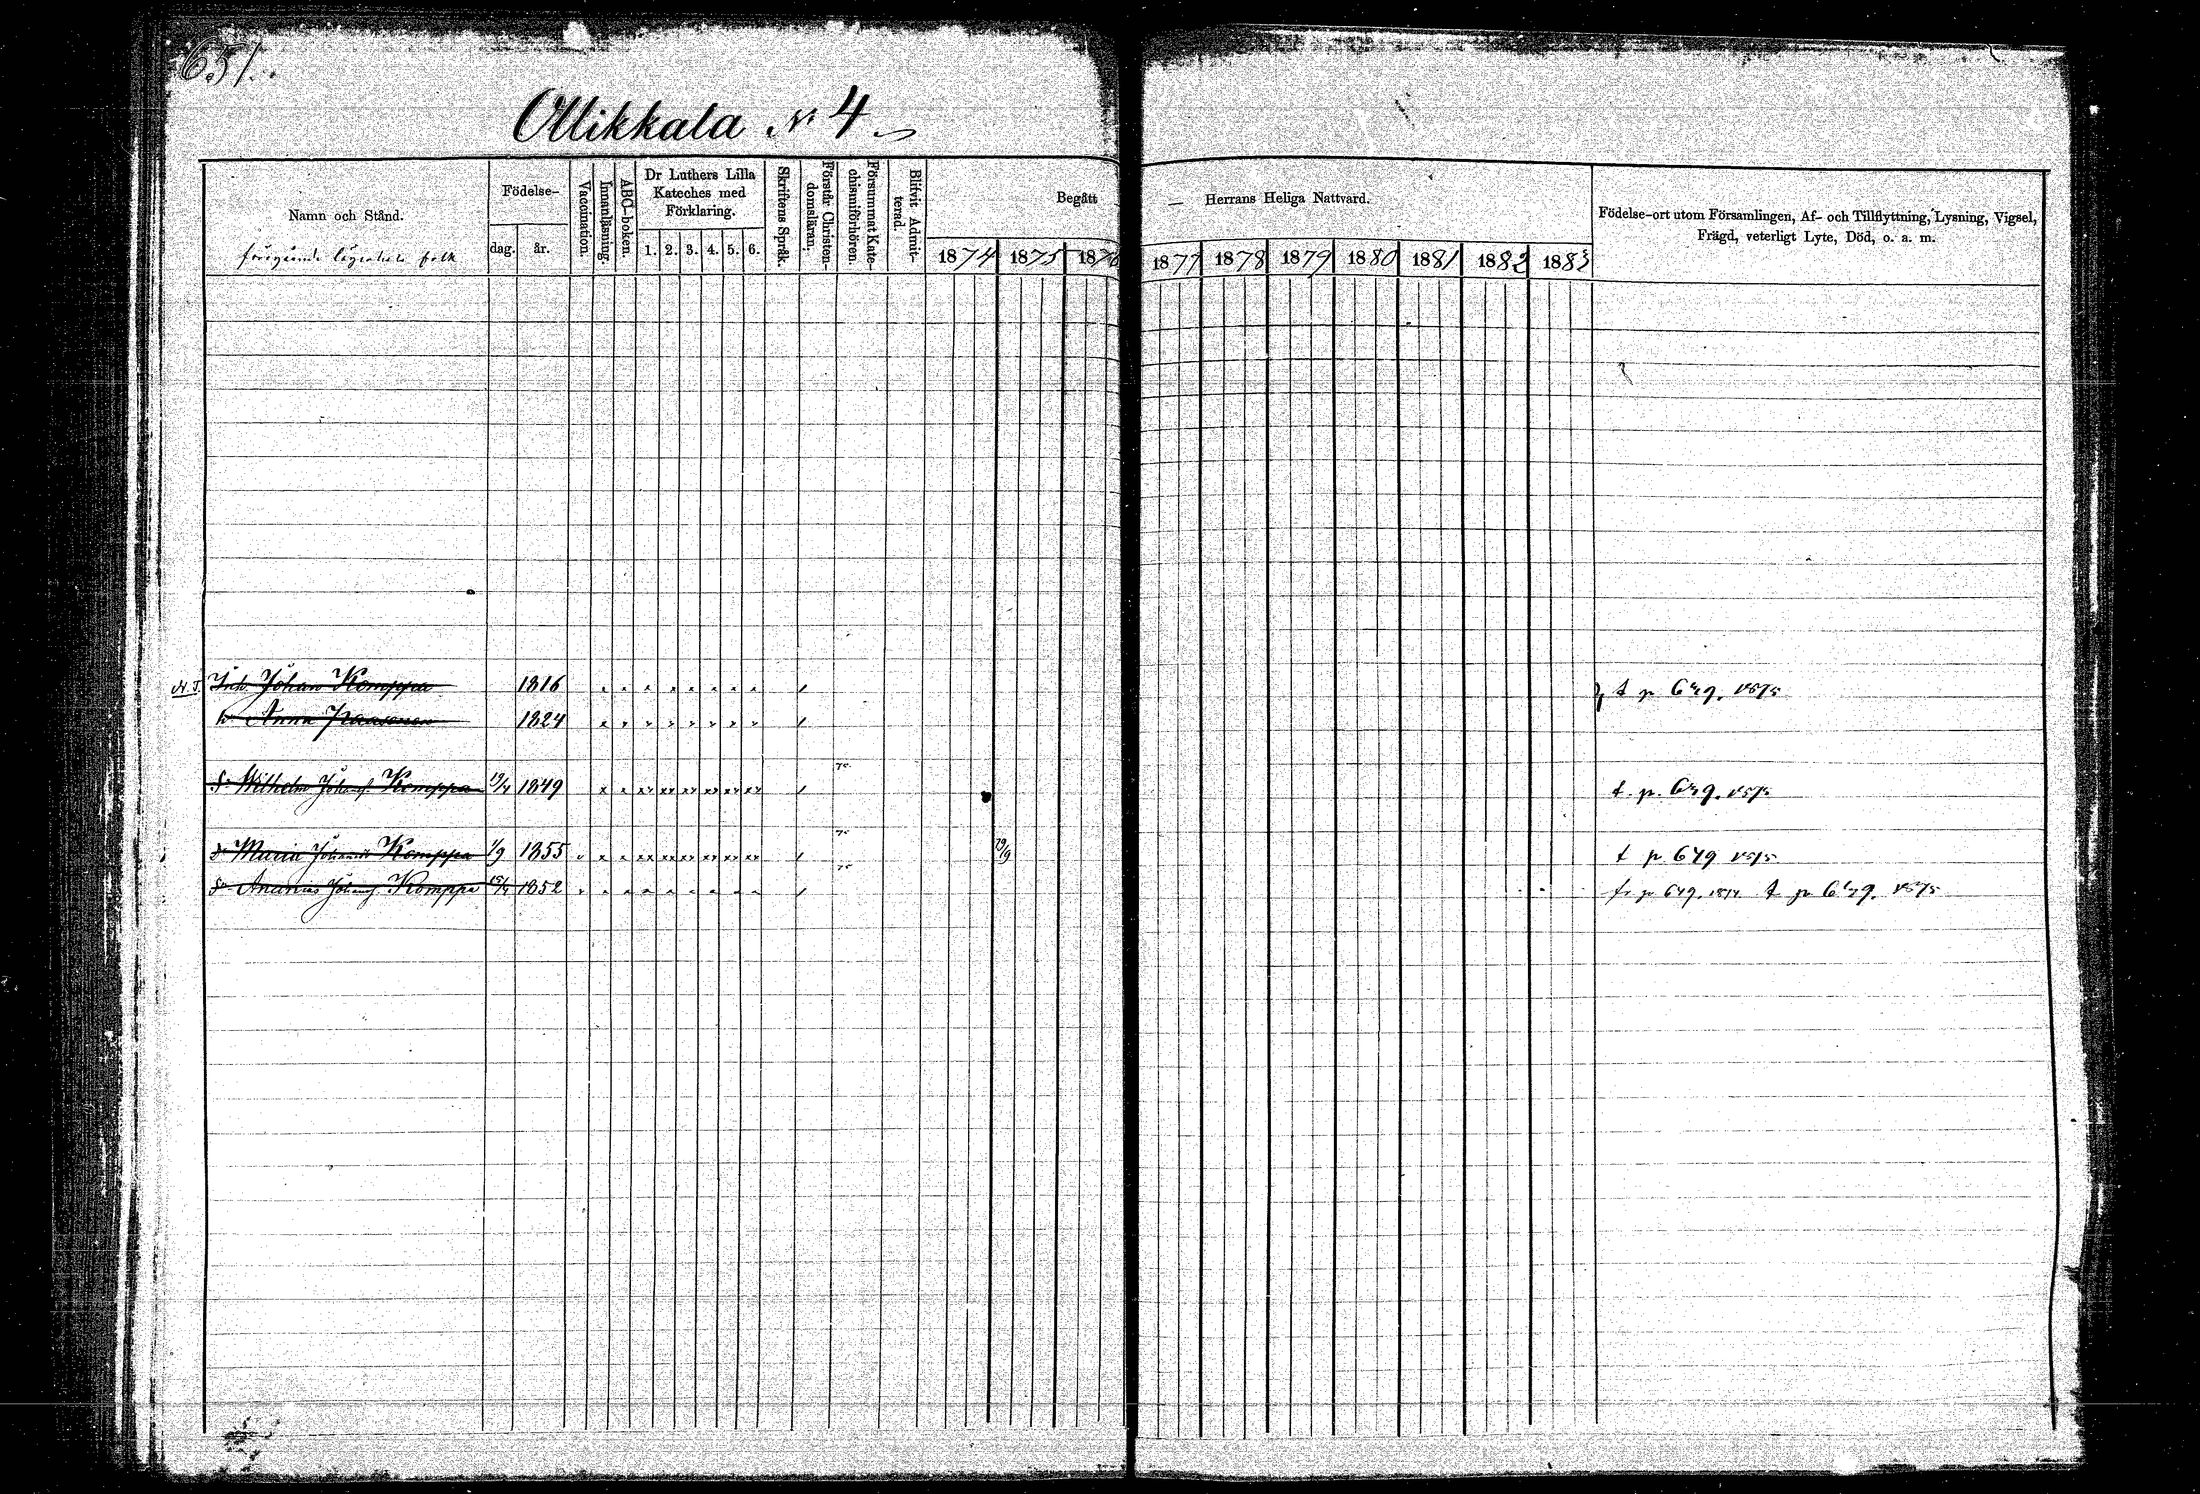 651.
Ollikkala № 4
Namn och Stånd.
Födelse-
dag. år.
Vaccination.
Innanläsning.
ABC-boken.
Dr Luthers Lilla Kateches med Förklaring.
1. 2. 3. 4. 5. 6.
Skriftens Språk.
Förstår Christendomsläran.
Försummat Katechismiförhören.
Blifvit Admitterad.
Begått — Herrans Heliga Nattvard.
1874 1875 1876 1877 1878 1879 1880 1881 1882 1883
Födelse-ort utom Församlingen, Af- och Tillflyttning, Lysning, Vigsel,
Frägd, veterligt Lyte, Död, o. a. m.
Inh. Johan Komppa 1816 t p 649. 1875
Anna 1824
75
S. Wilhelm Johanss. Komppa 19/4 1849 t. p. 649. 1875
75
D. Maria Johansdr Komppa 1/9 1855 19/9 t p 649 1875
75
Sn Ananias Johanss. Komppa 1852 fr p 649. 1874. t p 649. 1875